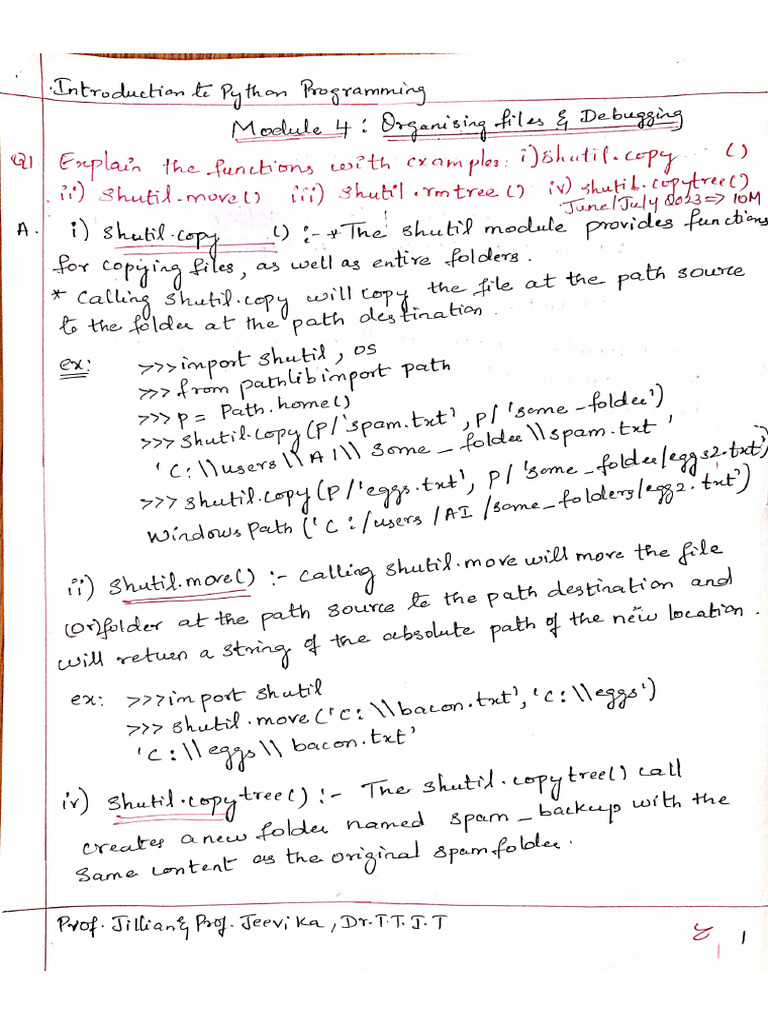 Introduction to Python Programming
Module 4 : Organising files & Debugging
Q1 Explain the functions with examples: i) shutil.copy ()
ii) shutil.move() iii) shutil.rmtree() iv) shutil.copytree()
June/July 2023 => 10M
A. i) shutil.copy () :- * The shutil module provides functions
for copying files, as well as entire folders.
* Calling shutil.copy will copy the file at the path source
to the folder at the path destination.
ex: >>> import shutil, os
>>> from pathlib import path
>>> p = Path.home()
>>> shutil.copy(p/'spam.txt', p/'some_folder')
'C:\\users\\AI\\some_folder\\spam.txt'
>>> shutil.copy(p/'eggs.txt', p/'some_folder/eggs2.txt')
Windows Path ('C:/users/AI/some_folders/egg2.txt')
ii) shutil.move() :- calling shutil.move will move the file
(or) folder at the path source to the path destination and
will return a string of the absolute path of the new location.
ex: >>> import shutil
>>> shutil.move('C:\\bacon.txt', 'C:\\eggs')
'C:\\eggs\\bacon.txt'
iv) shutil.copytree() :- The shutil.copytree() call
creates a new folder named spam_backup with the
same content as the original spam folder.
Prof. Jillian & Prof. Jeevika, Dr.T.T.I.T
1